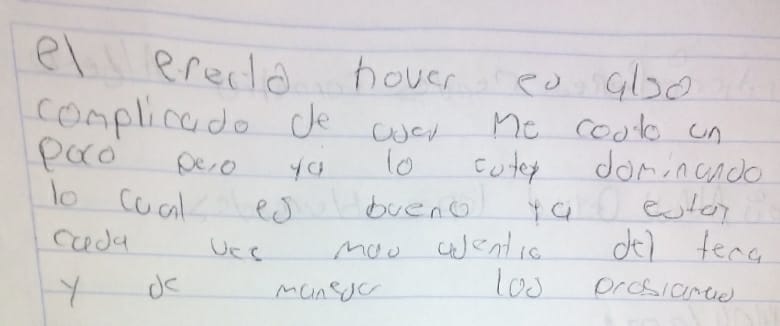 el efecto hover es algo
complicado de usar Me costo un
poco pero ya lo estoy dominando
lo cual es bueno ya estar
cada vez mas dentro del tema
y de manejar los